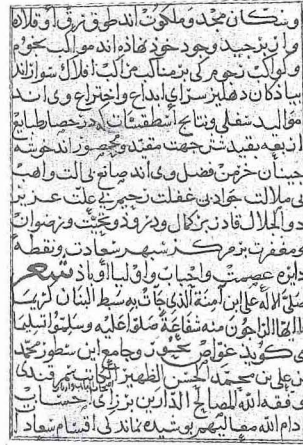 و نتکان مجد و ملکوت اند طوق زرق او قلاده
واز بر جید وجود خود نهاده اند مواکب نجوم
و کواکب رجوم کی بر مناکب مراکب افلاک سوار اند
پیادکان دهلیز سرای ابداع و اختراع وی اند
موالید سفلی و نتایج اسطقسات که در حصار طبایع
اربعه بقید شش جهت مقید و محصور اند خوشه
چینان خرمن فضل وی اند صانع بی آلت واهب
بی ملالت جواد بی غفلت رحیم بی علت عزیز
ذو الجلال قادر بر کمال و درود و تحیت و رضوان
و مغفرت بر مرکز سپهر سعادت و نقطه
دایره عصمت
شعر
صلی الاله علی ابن آمنة الذی جاءت به سبط البنان کریما
یا ایها الراجون منه شفاعة صلوا علیه وسلموا تسلیما
می کوید غواص بحور و جامع این سطور محمد
بن علی بن محمد بن الحسن الظهیری الکاتب السمرقندی
وفقه الله لمصالح الدارین بر رای اصحاب
ادام الله معالیهم پوشیده نماند کی اقسام سعادا